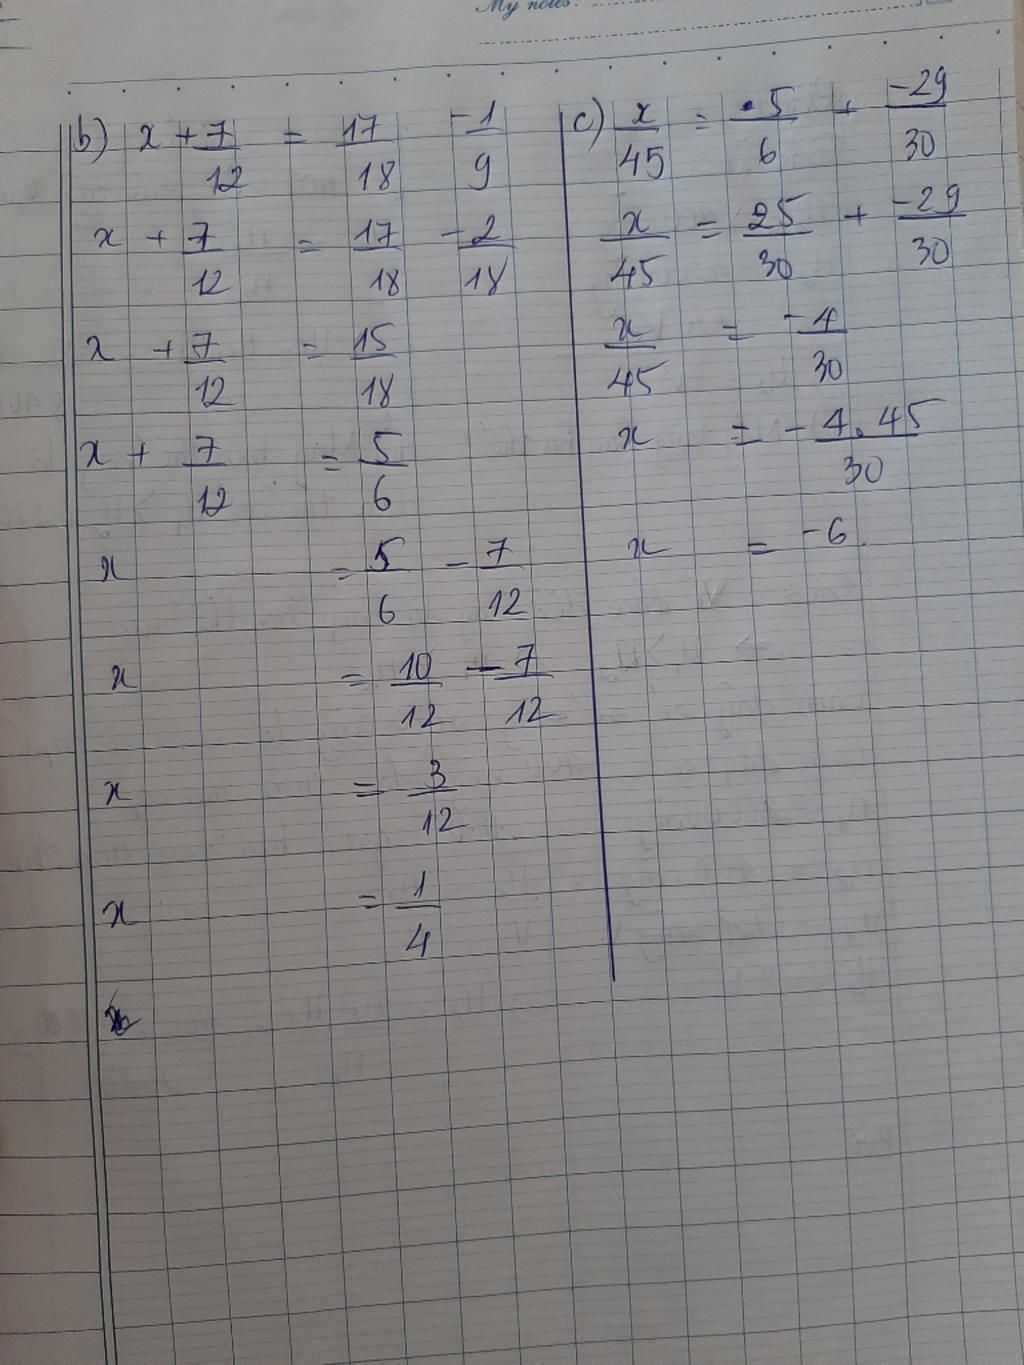 My notes:
b) x + 7/12 = 17/18 - 1/9
x + 7/12 = 17/18 - 2/18
x + 7/12 = 15/18
x + 7/12 = 5/6
x = 5/6 - 7/12
x = 10/12 - 7/12
x = 3/12
x = 1/4
c) x/45 = 5/6 + -29/30
x/45 = 25/30 + -29/30
x/45 = -4/30
x = -4.45/30
x = -6.